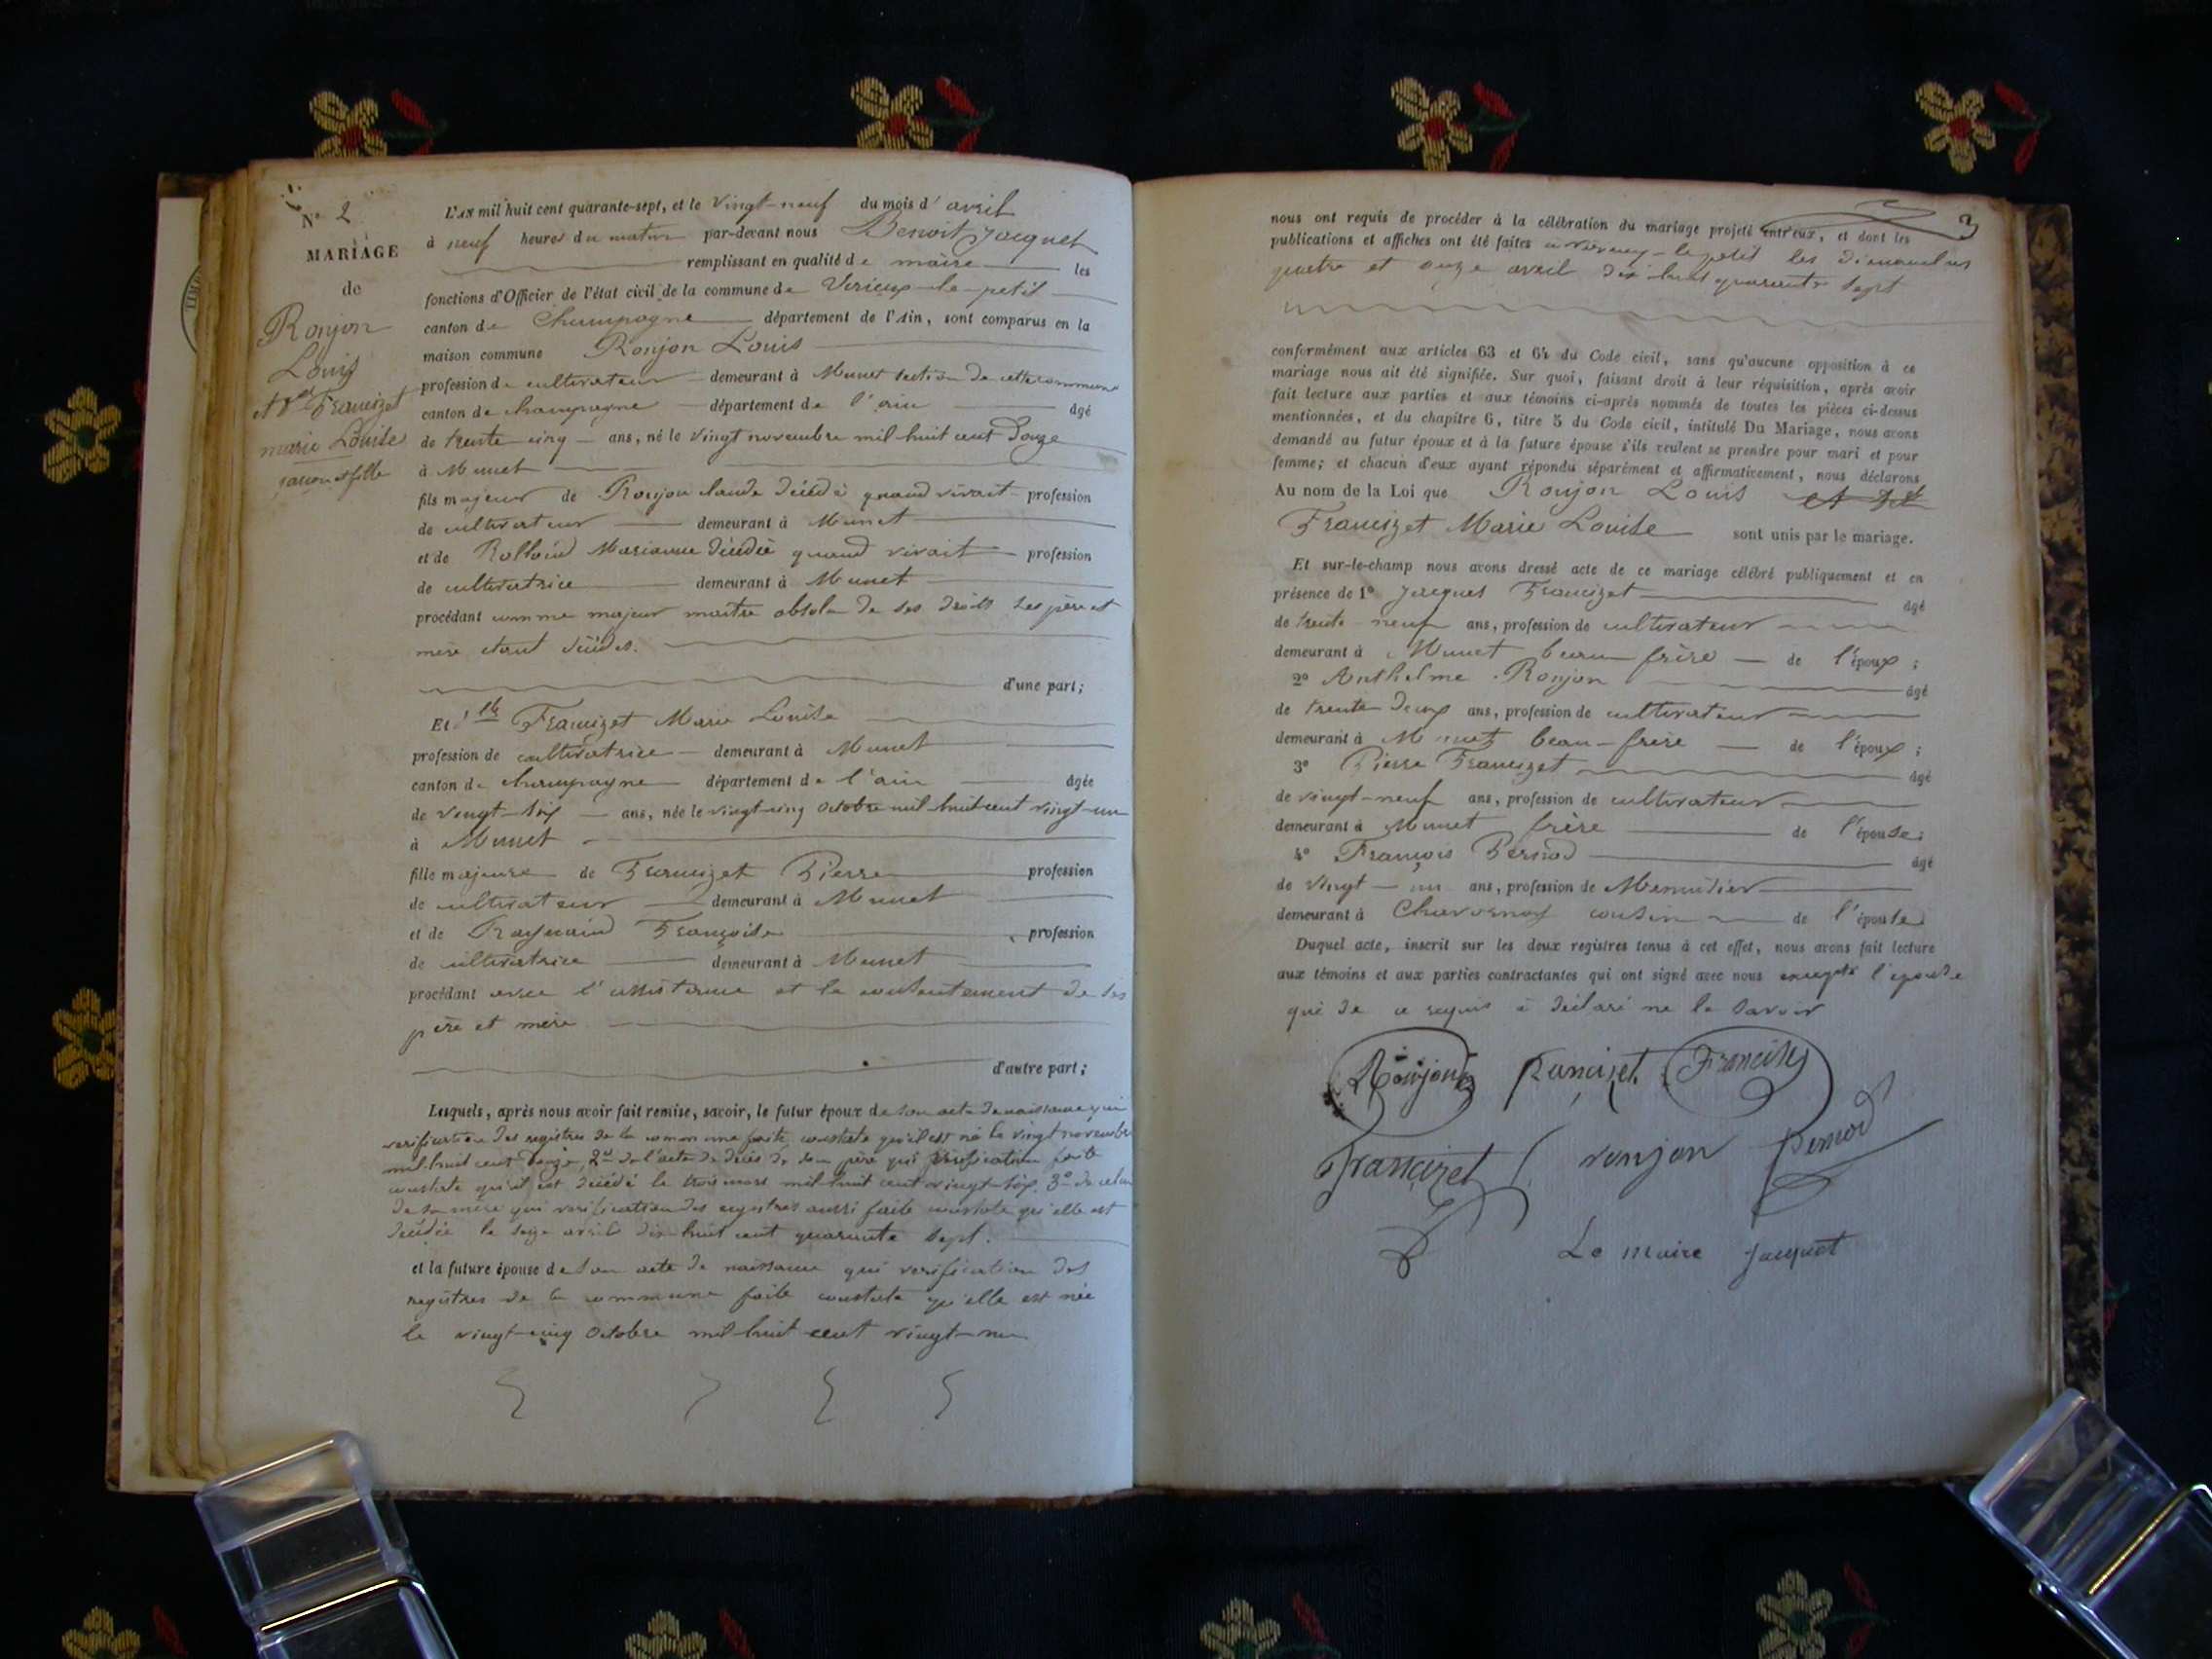 N° 2
MARIAGE
de
Ronjon
Louis
et Dlle Francizet
marie Louise
garçon et fille
L'An mil huit cent quarante-sept, et le vingt-neuf du mois d'avril
à neuf heures du matin par-devant nous Benoit Jacquet
remplissant en qualité de maire les
fonctions d'Officier de l'état civil de la commune de Virieux-le-petit
canton de Champagne département de l'Ain, sont comparus en la
maison commune Ronjon Louis
profession de cultivateur demeurant à Munet section de cette commune
canton de champagne département de l'ain âgé
de trente cinq ans, né le vingt novembre mil huit cent Douze
à Munet
fils majeur de Ronjon claude décédé quand vivait profession
de cultivateur demeurant à Munet
et de Rolland Marianne décédée quand vivait profession
de cultivatrice demeurant à Munet
procédant comme majeur maitre absolu de ses droits ses père et
mère étant décédés.
d'une part;
Et Dlle Francizet Marie Louise
profession de cultivatrice demeurant à Munet
canton de champagne département de l'ain âgée
de vingt-six ans, née le vingt-cinq octobre mil huit cent vingt-un
à Munet
fille majeure de Francizet Pierre profession
de cultivateur demeurant à Munet
et de Françoise profession
de cultivatrice demeurant à Munet
procédant avec l'assistance et le consentement de ses
père et mère
d'autre part;
Lesquels, après nous avoir fait remise, savoir, le futur époux de son acte de naissance qui
verification des registres de la commune faite constate qu'il est né le vingt novembre
mil huit cent douze, 2° de l'acte de décès de son père qui vérification faite
constate qu'il est décédé le trois mars mil huit cent vingt-six, 3° de celui
de sa mère qui vérification des registres aussi faite constate qu'elle est
décédée le seize avril dix-huit cent quarante sept.
et la future épouse de son acte de naissance qui verification des
registres de la commune faite constate qu'elle est née
le vingt-cinq octobre mil huit cent vingt-un
3
nous ont requis de procéder à la célébration du mariage projeté entr'eux, et dont les
publications et affiches ont été faites à le petit les dimanches
quatre et onze avril dix huit quarante sept
conformément aux articles 63 et 64 du Code civil, sans qu'aucune opposition à ce
mariage nous ait été signifiée. Sur quoi, faisant droit à leur réquisition, après avoir
fait lecture aux parties et aux témoins ci-après nommés de toutes les pièces ci-dessus
mentionnées, et du chapitre 6, titre 5 du Code civil, intitulé Du Mariage, nous avons
demandé au futur époux et à la future épouse s'ils veulent se prendre pour mari et pour
femme; et chacun d'eux ayant répondu séparément et affirmativement, nous déclarons
Au nom de la Loi que Ronjon Louis et Dlle
Francizet Marie Louise sont unis par le mariage.
Et sur-le-champ nous avons dressé acte de ce mariage célébré publiquement et en
présence de 1° Jacques Francizet âgé
de trente-neuf ans, profession de cultivateur
demeurant à Munet beau frère de l'époux;
2° Anthelme Ronjon âgé
de trente deux ans, profession de cultivateur
demeurant à Munet beau-frère de l'époux;
3° Pierre Francizet âgé
de vingt-neuf ans, profession de cultivateur
demeurant à Munet frère de l'épouse;
4° François Bernod âgé
de vingt-un ans, profession de Menuisier
demeurant à Chavornay cousin de l'épouse
Duquel acte, inscrit sur les deux registres tenus à cet effet, nous avons fait lecture
aux témoins et aux parties contractantes qui ont signé avec nous excepté l'épouse
qui de ce requis a déclaré ne le savoir
Ronjon Francizet Francizet
Francizet ronjon Bernod
Le maire Jacquet